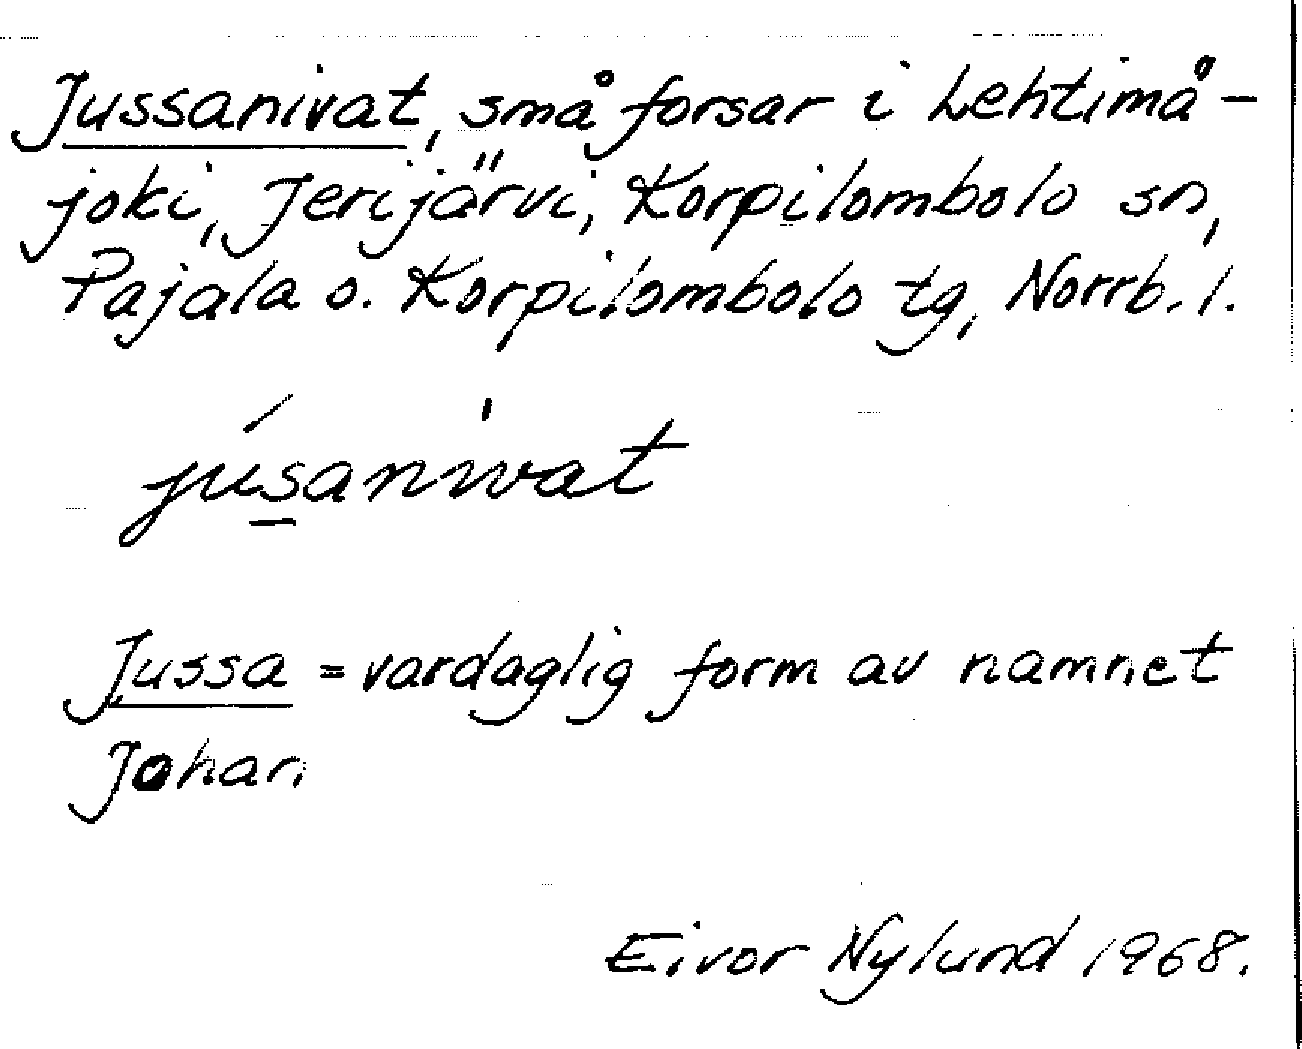 Jussanivat, små forsar i Lehtimå-
joki, Jerijärvi, Korpilombolo sn,
Pajala o. Korpilombolo tg, Norrb. l.
júsanivat
Jussa = vardaglig form av namnet
Johan
Eivor Nylund 1968.